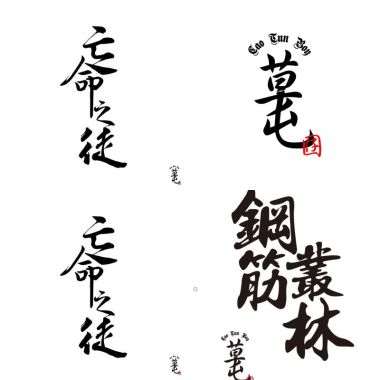 亡命之徒
Cao Tun Boy
草屯
囝
草屯
亡命之徒
鋼筋
叢林
Cao Tun Boy
草屯
草屯